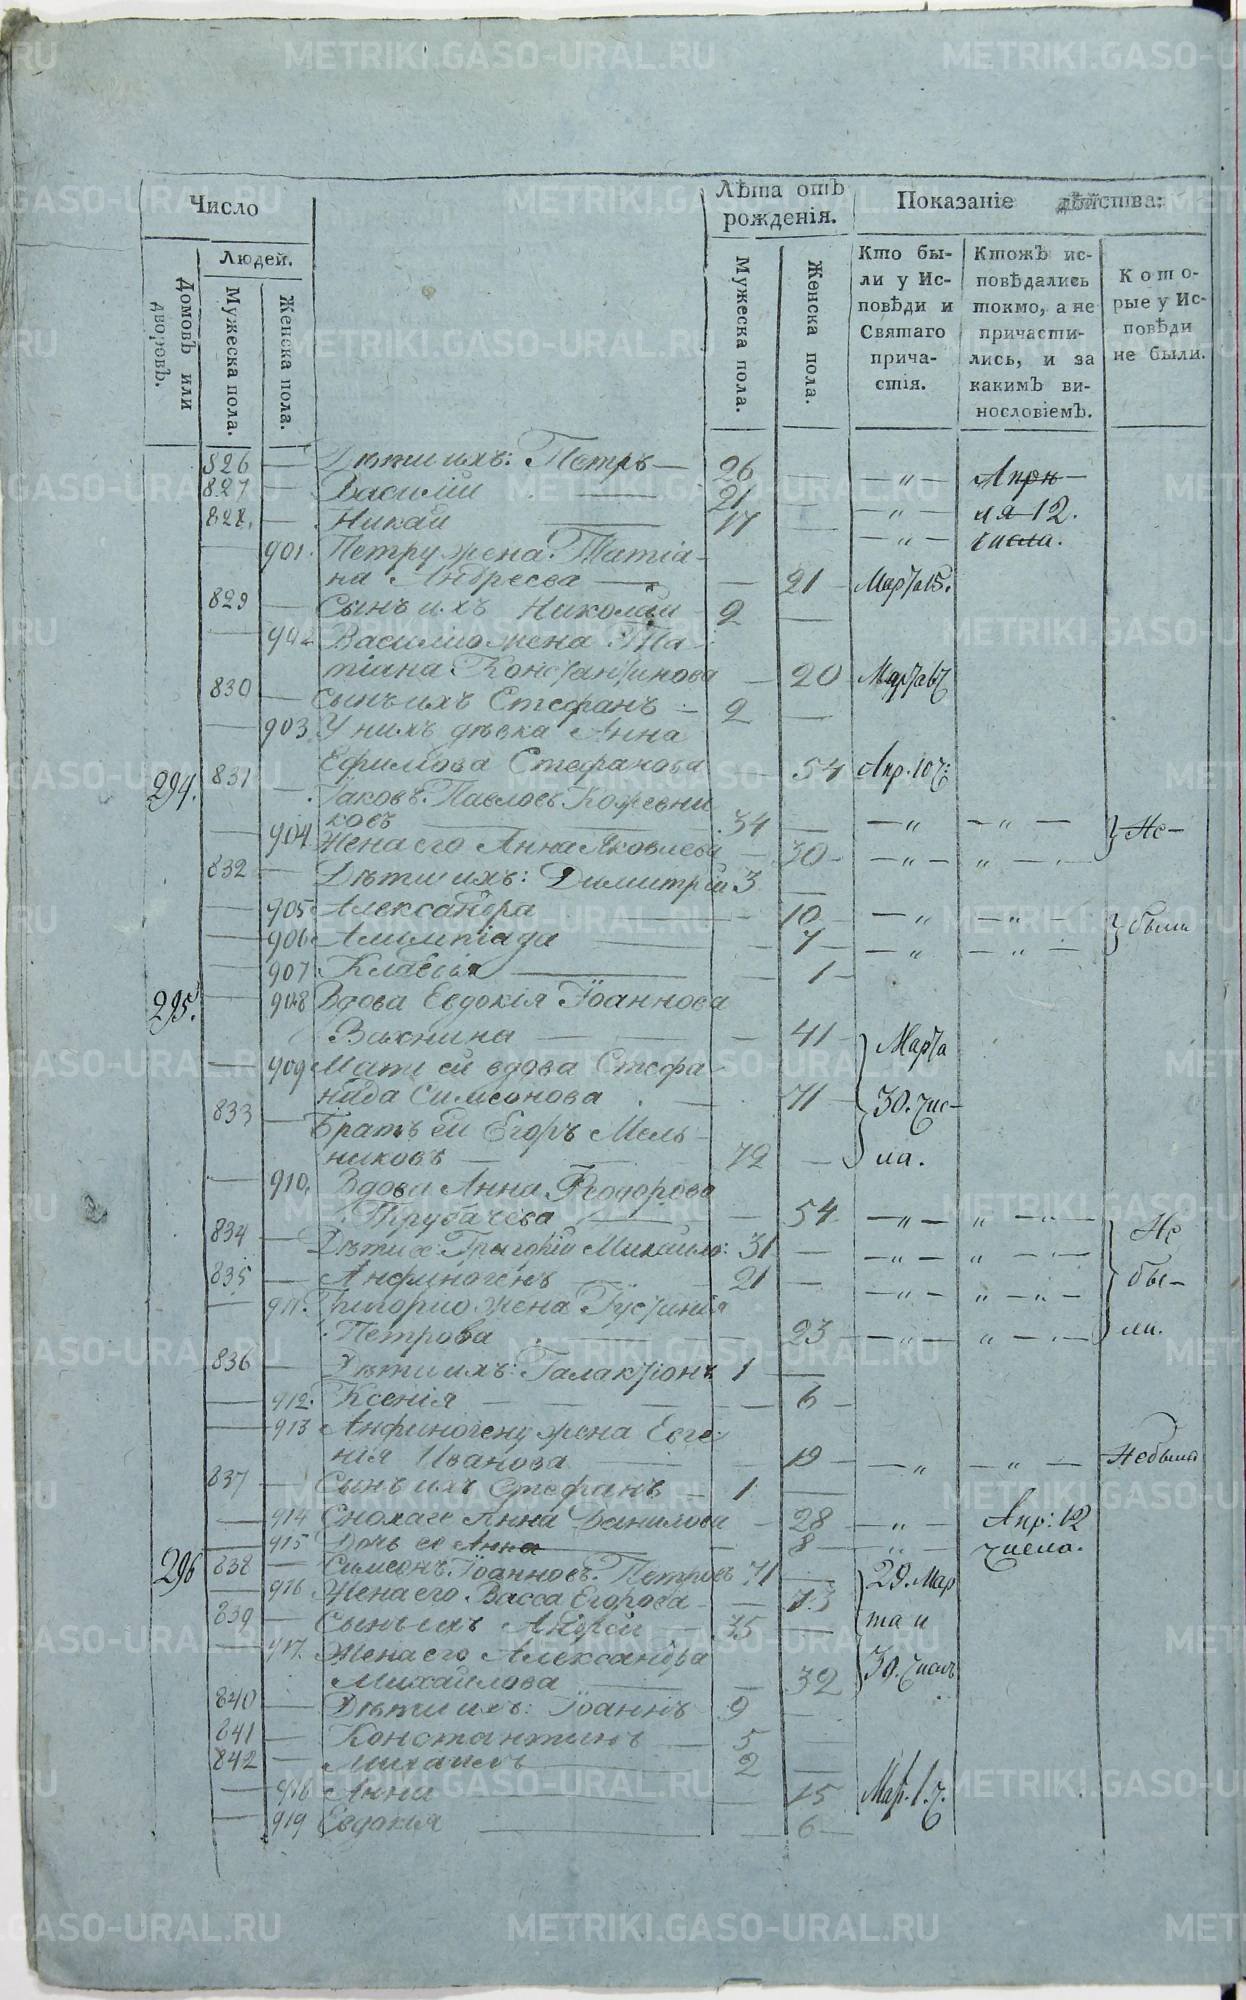 METRIKI.GASO-URAL.RU
Число
Лѣта отъ рожденія.
Показаніе дѣйства:
Домовъ или дворовъ.
Людей.
Мужеска пола.
Женска пола.
Мужеска пола.
Женска пола.
Кто были у Исповѣди и Святаго причастія.
Ктожъ исповѣдались токмо, а не причастились, и за какимъ винословіемъ.
Которые у Исповѣди не были.
826 — Дѣти ихъ: Петръ — 26 — — „ — Апрѣ—
827 — Василій — 21 — — „ — ля 12.
828. — Никай — 17 — — „ — числа.
— 901. Петру жена Татіа-
на Андреева — — 21 Марта 15.
829 — Сынъ ихъ Николай 2 —
— 902 Василію жена Та-
тіана Константинова — 20
830 — Сынъ ихъ Стефанъ — 2 —
— 903. У нихъ дѣвка Анна
Ефимова Стефанова — 54 Апр. 10 ч:
294. 831 — Іаковъ Павловъ Кожевни
ковъ — 34 — — „ — — „ — Не—
— 904 Жена его Анна Яковлева — 30 — — „ — „ — —
832 — Дѣти ихъ: Димитрій 3 —
— 905 Александра — — 10 — „ — — „ — были
— 906 Алимпіада — — 7 — — „ — — „ —
— 907 Клавдія — — 1 —
295. — 908 Вдова Евдокія Іоаннова
— — 41 Марта
— 909 Мать ей вдова Стефа-
нида Симеонова — 71 30. чис—
833 — Братъ ей Егоръ Мель-
никовъ — 72 — ла.
— 910. Вдова Анна Ѳеодорова
Трубачева — — 54 — „ — „ — — Не
834 — Дѣти ее: Григорій Михайло: 31 — — „ — „ — —
835 — Анфиногенъ — 21 — — „ — „ — „ — бы—
— 911. Григорію жена Іустинія
Петрова — — 23 — — „ — „ — „ — ли.
836 — Дѣти ихъ: Галактіонъ 1 —
— 912. Ксенія — — 6 —
— 913 Анфиногену жена Евге-
нія Иванова — — 19 — — „ — „ — Небыла
837 — Сынъ ихъ Стефанъ — 1 —
— 914 Сноха ее Анна Данилова — 28 — „ — Апр: 12
— 915 Дочь ее Анна — 8 — „ — числа.
296 838 — Симеонъ Іоанновъ Петровъ 71 — 29. Мар
— 916 Жена его Васса Егорова — 73
839 — Сынъ ихъ Андрей — 35 — та и
— 917. Жена его Александра
Михайлова — — 32 30. числъ
840 — Дѣти ихъ: Іоаннъ 9 —
841 — Константинъ — 5 —
842 — Михаилъ — 2 —
— 918 Анна — — 15
— 919 Евдокія — — 6 —